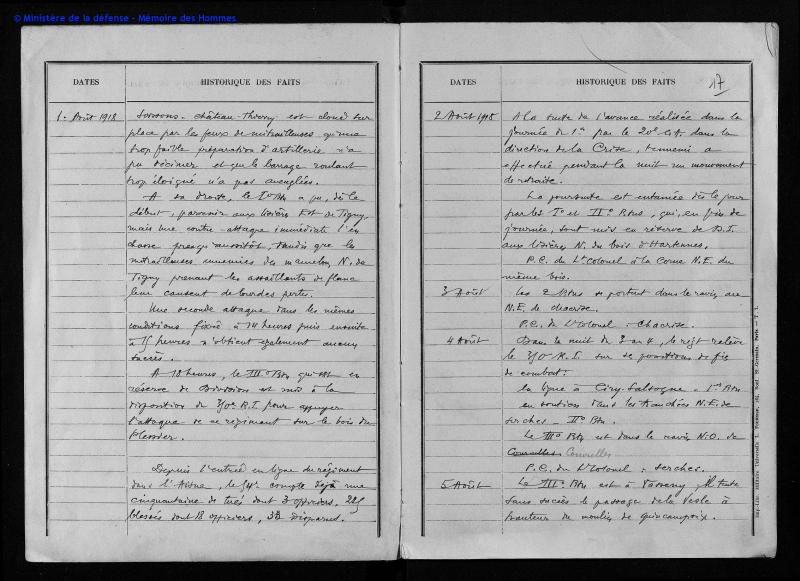 © Ministère de la défense - Mémoire des Hommes
DATES
HISTORIQUE DES FAITS
1. Août 1918
Soissons - Château-Thierry est cloué sur
place par les feux de mitrailleuses qu'une
trop faible préparation d'artillerie n'a
pu décimer et que le barrage roulant
trop éloigné n'a pas aveuglées.
A sa droite, le 1er Btn a pu, dès le
début, parvenir aux lisières Est de Tigny,
mais une contre-attaque immédiate l'en
chasse presque aussitôt, tandis que les
mitrailleuses ennemies du mamelon N. de
Tigny prenant les assaillants de flanc
leur causent de lourdes pertes.
Une seconde attaque dans les mêmes
conditions fixée à 14 heures puis ensuite
à 15 heures n'obtient également aucun
succès.
A 18 heures, le III° Btn qui est en
réserve de Division est mis à la
disposition du 350e R.I. pour appuyer
l'attaque de ce régiment sur le bois du
Plessier.
Depuis l'entrée en ligne du régiment
dans l'Aisne, le compte déjà une
cinquantaine de tués dont 3 officiers, 225
blessés dont 18 officiers, 32 disparus.
DATES
HISTORIQUE DES FAITS
17
2 Août 1918
A la suite de l'avance réalisée dans la
journée du 1er par le 20e C.A. dans la
direction de la Crise, l'ennemi a
effectué pendant la nuit un mouvement
de retraite.
La poursuite est entamée dès le jour
par les I° et II° Btns, qui, en fin de
journée, sont mis en réserve de D.I.
aux lisières N. du bois d'Hartennes.
P.C. du Lt Colonel à la Corne N.E. du
même bois.
3 Août
Les 2 Btns se portent dans le ravin au
N.E. de Chacrise.
P.C. du Lt Colonel - Chacrise.
4 Août
Dans la nuit du 3 au 4, le régt relève
le 350 R.I. sur ses positions de fin
de combat:
en ligne à Ciry-Salsogne - 1er Btn
en soutien dans les tranchées N.E. de
Serches - II° Btn.
Le III° Btn est dans le ravin N.O. de
Couvrelles
P.C. du Lt Colonel - Serches.
5 Août
Le III° Btn est à Vasseny. Il tente
sans succès le passage de la Vesle à
hauteur du moulin de Quincampoix.